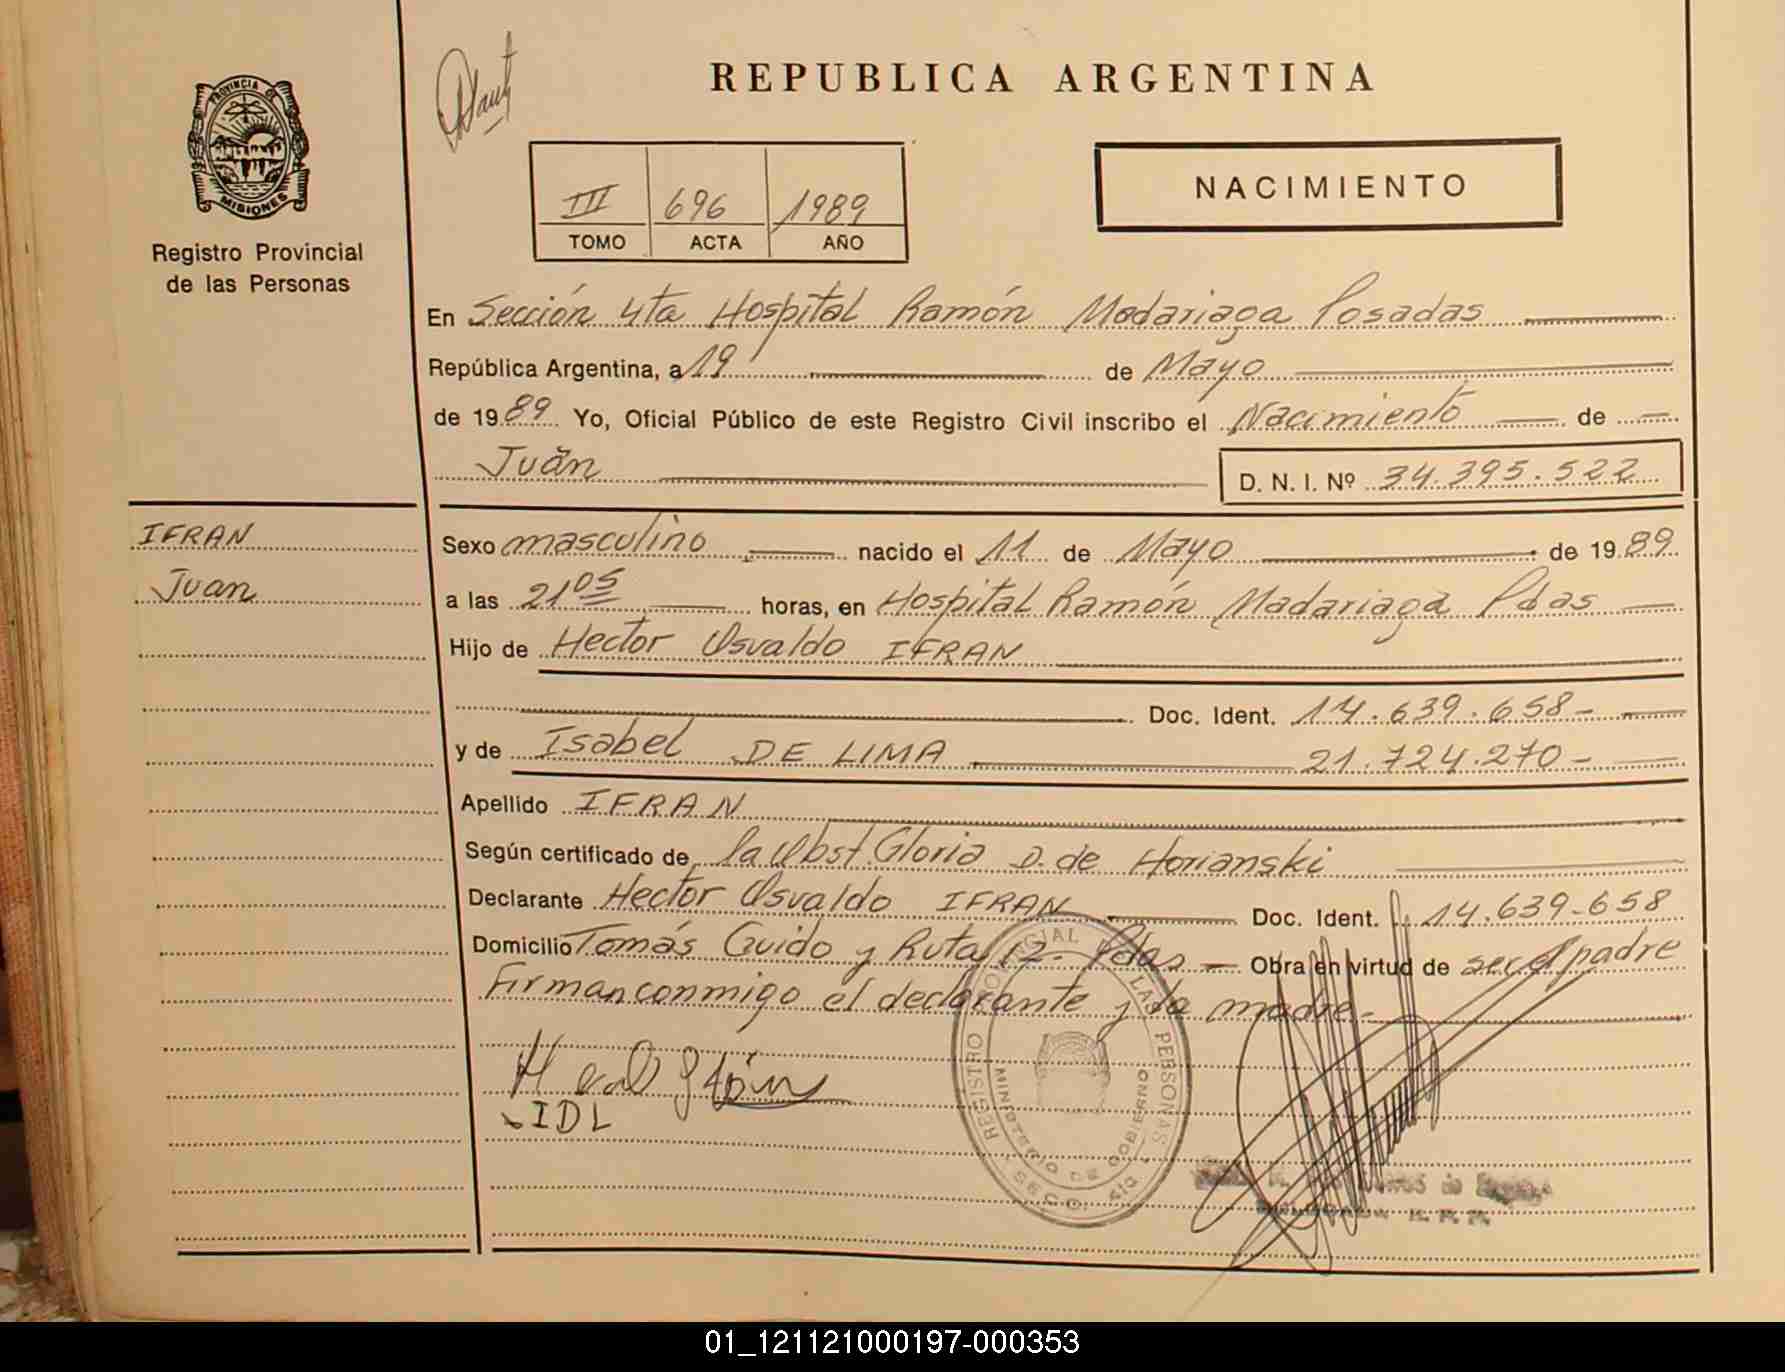 REPUBLICA ARGENTINA
PROVINCIA DE
MISIONES
Registro Provincial
de las Personas
III 696 1989
TOMO ACTA AÑO
NACIMIENTO
En Sección 4ta Hospital Ramón Madariaga Posadas
República Argentina, a 19 de Mayo
de 1989 Yo, Oficial Público de este Registro Civil inscribo el Nacimiento de
Juan D. N. I. Nº 34.395.522
IFRAN
Juan
Sexo masculino nacido el 11 de Mayo de 1989
a las 21 05 horas, en Hospital Ramón Madariaga Pdas
Hijo de Hector Osvaldo IFRAN
Doc. Ident. 14.639.658-
y de Isabel DE LIMA 21.724.270-
Apellido IFRAN
Según certificado de la Obst. Gloria D. de Horianski
Declarante Hector Osvaldo IFRAN Doc. Ident. 14.639-658
Domicilio Tomás Guido y Ruta 12- Pdas Obra en virtud de ser el padre
Firman conmigo el declarante y la madre-
IDL
REGISTRO PROVINCIAL LAS PERSONAS
MINISTERIO DE GOBIERNO
01_121121000197-000353